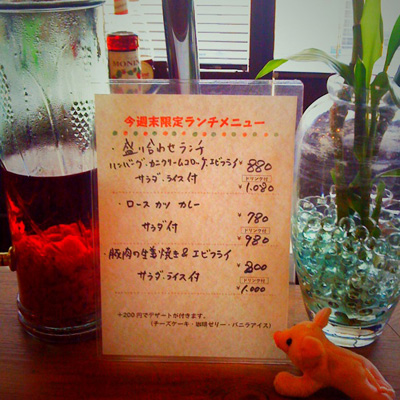 MONIN
今週末限定ランチメニュー
・盛り合わせランチ
ハンバーグ・カニクリームコロッケ・エビフライ ¥880
サラダ・ライス付 ドリンク付 ¥1.080
・ロース カツ カレー ¥780
サラダ付 ドリンク付 ¥980
・豚肉の生姜焼き & エビフライ ¥800
サラダ・ライス付 ドリンク付 ¥1.000
+200円でデザートが付きます。
(チーズケーキ・珈琲ゼリー・バニラアイス)